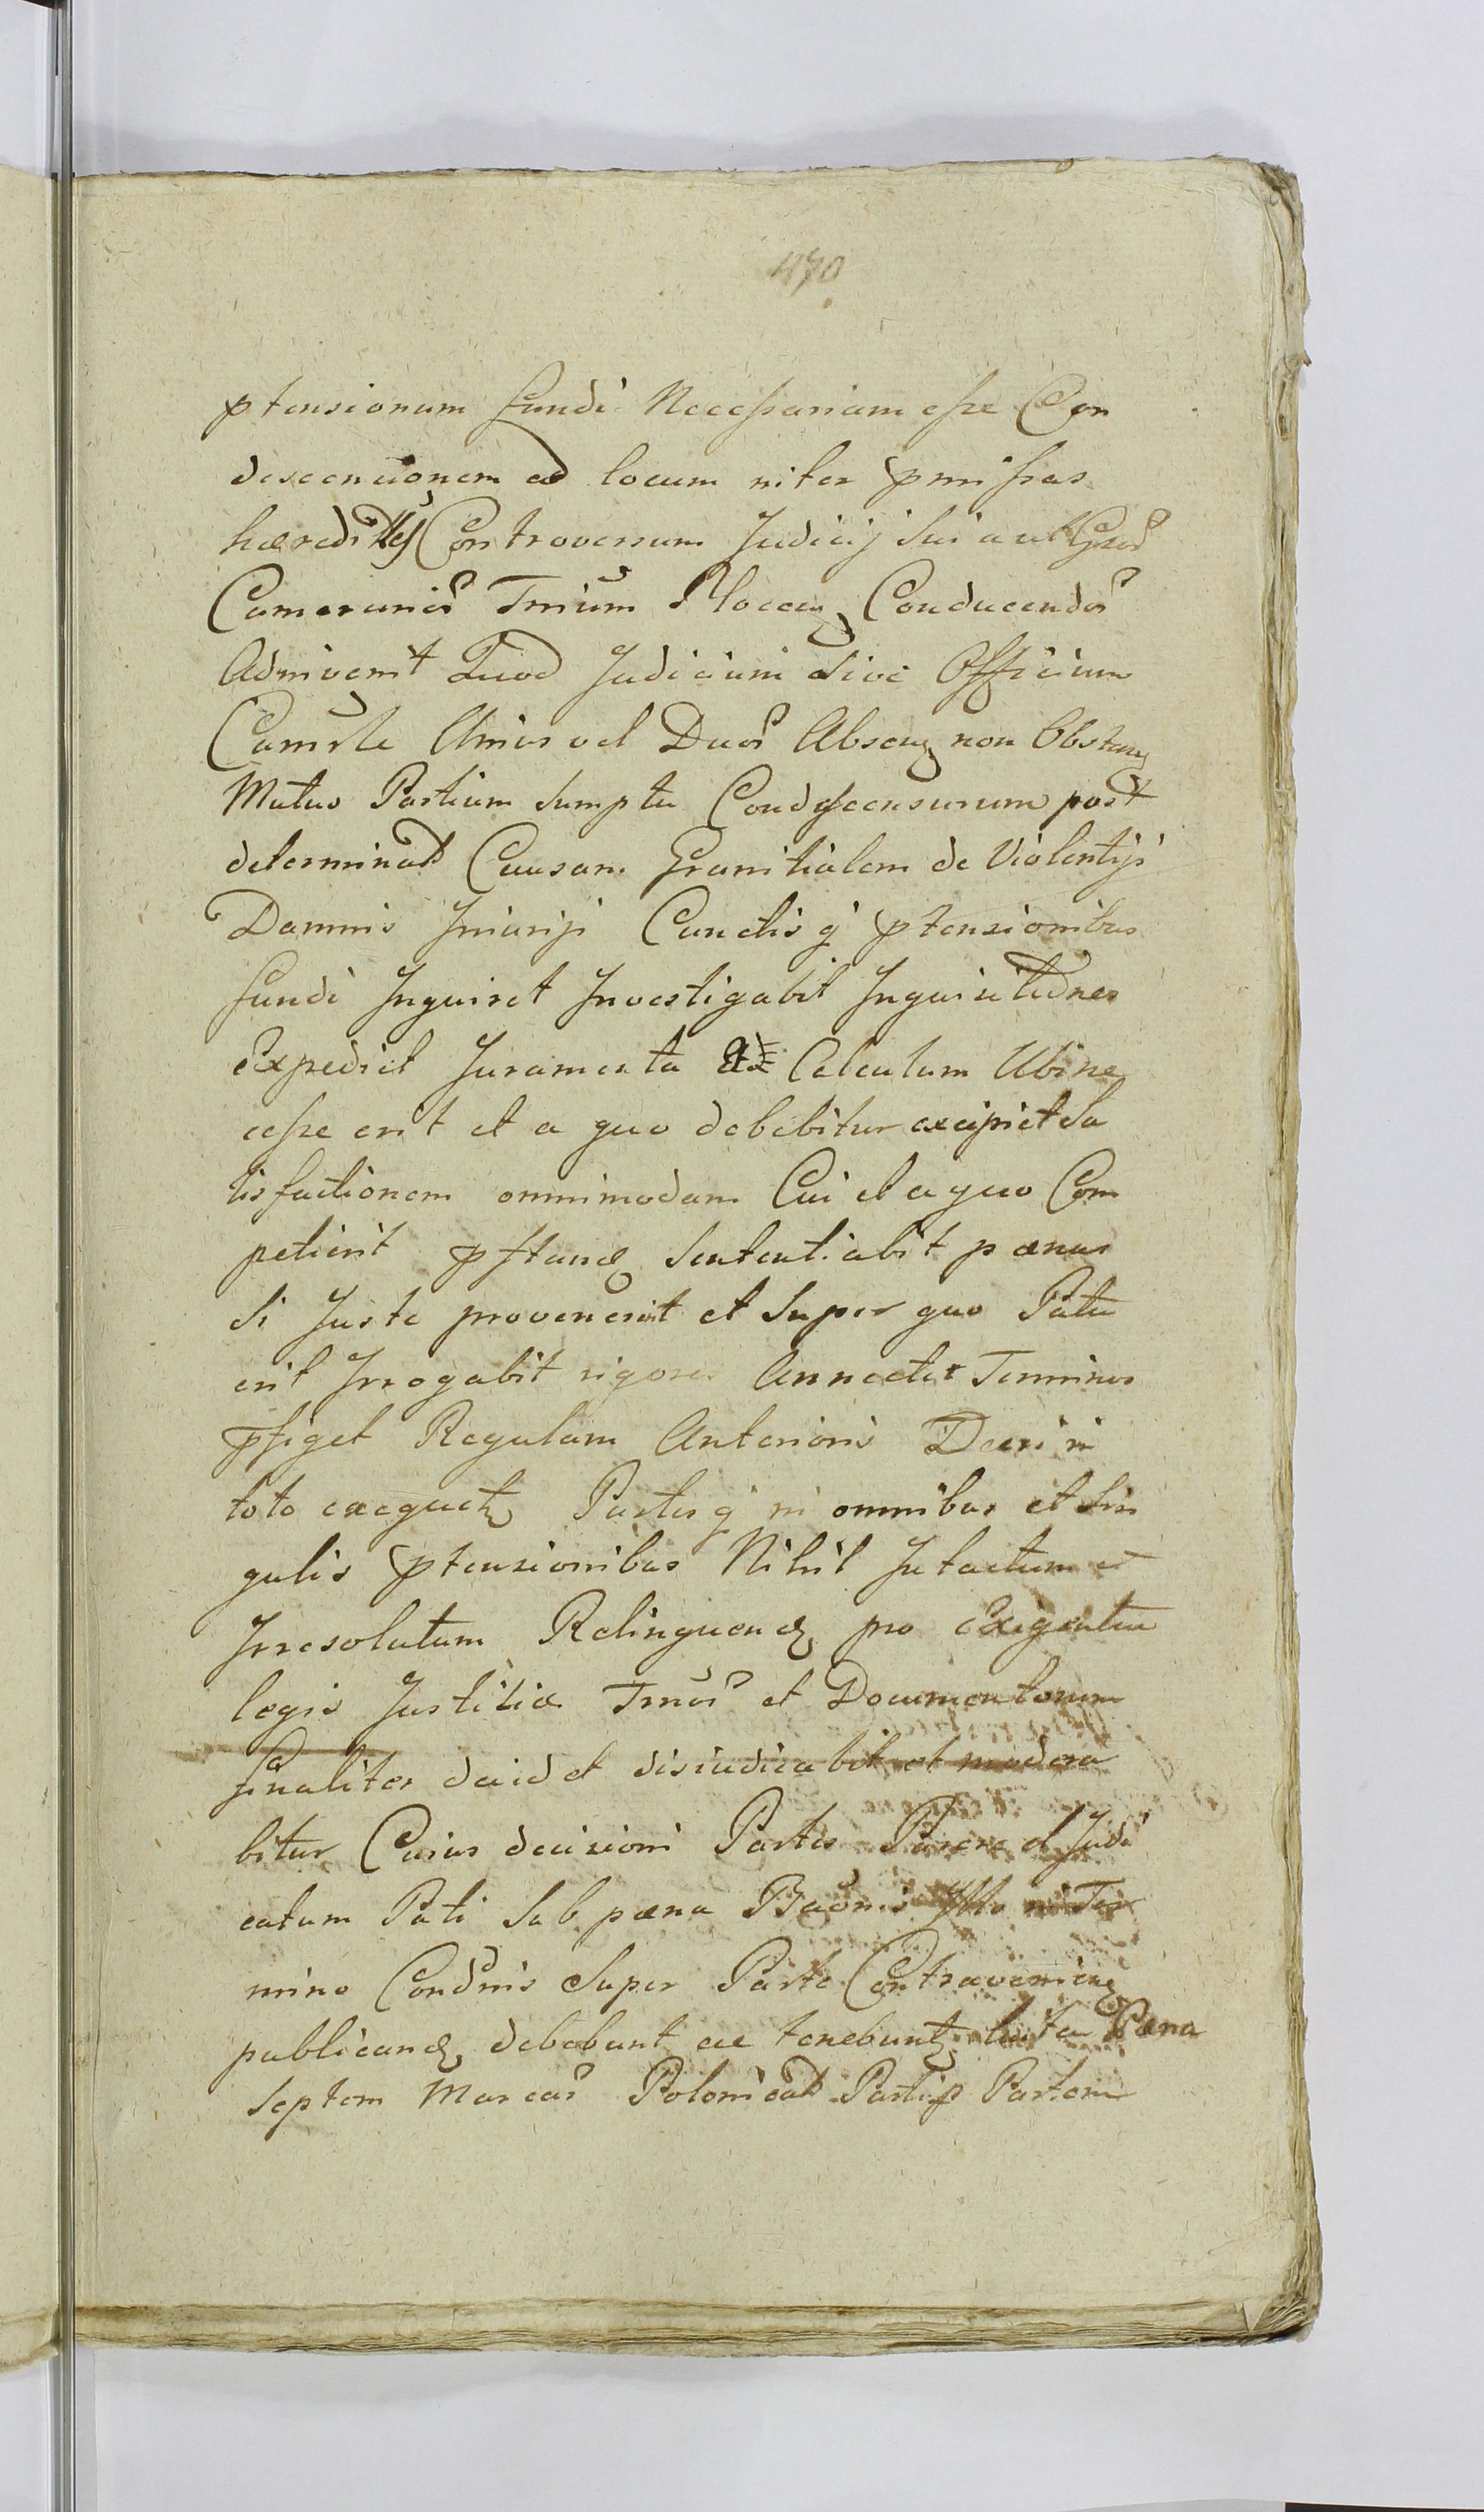 470
ptensionum fundi Necessariam esse Con
descensionem ad locum niter pmissas
hæreditts Controversum Judicij Sui aut
Camerarior Trium Plocen Conducendor
Adnivenit Quod Judicium Sive Officium
Camrle Unius vel Duor Absen non Obstan
Mutuo Partium Sumptu Condescensurum post
determinat Causam Granitialem de Violentijs
Damnis Iniurijs Cunctisq ptensionibus
fundi Inquiret Investigabit Inquisitiones
Expediet Juramenta Calculum Ubi ne
cesse erit et a quo debebitur excipiet Sa
tisfactionem omnimodam Cui et a quo Com
petierit pstand Sententiabit pænas
Si Juste provenerint et Super quo Patu
erit Irrogabit rigores Annectet Terminos
pfiget Regulam Anterioris Decri in
toto exequet Partesq in omnibus et Sin
gulis ptensionibus Nihil Intactum et
Irresolutum Relinquend pro Exigentia
legis Justitiæ Tmor et Documentorum
finaliter decidet disiudicabit et modera
bitur Cuius decisioni Partes Parere et Judi
catum Pati Sub pæna Baonis in Ter
mino Condnis Super Parte Contravenien
publicand debebunt ac tenebunt luita Pæna
Septem Marcar Polonicat Partis p Partem